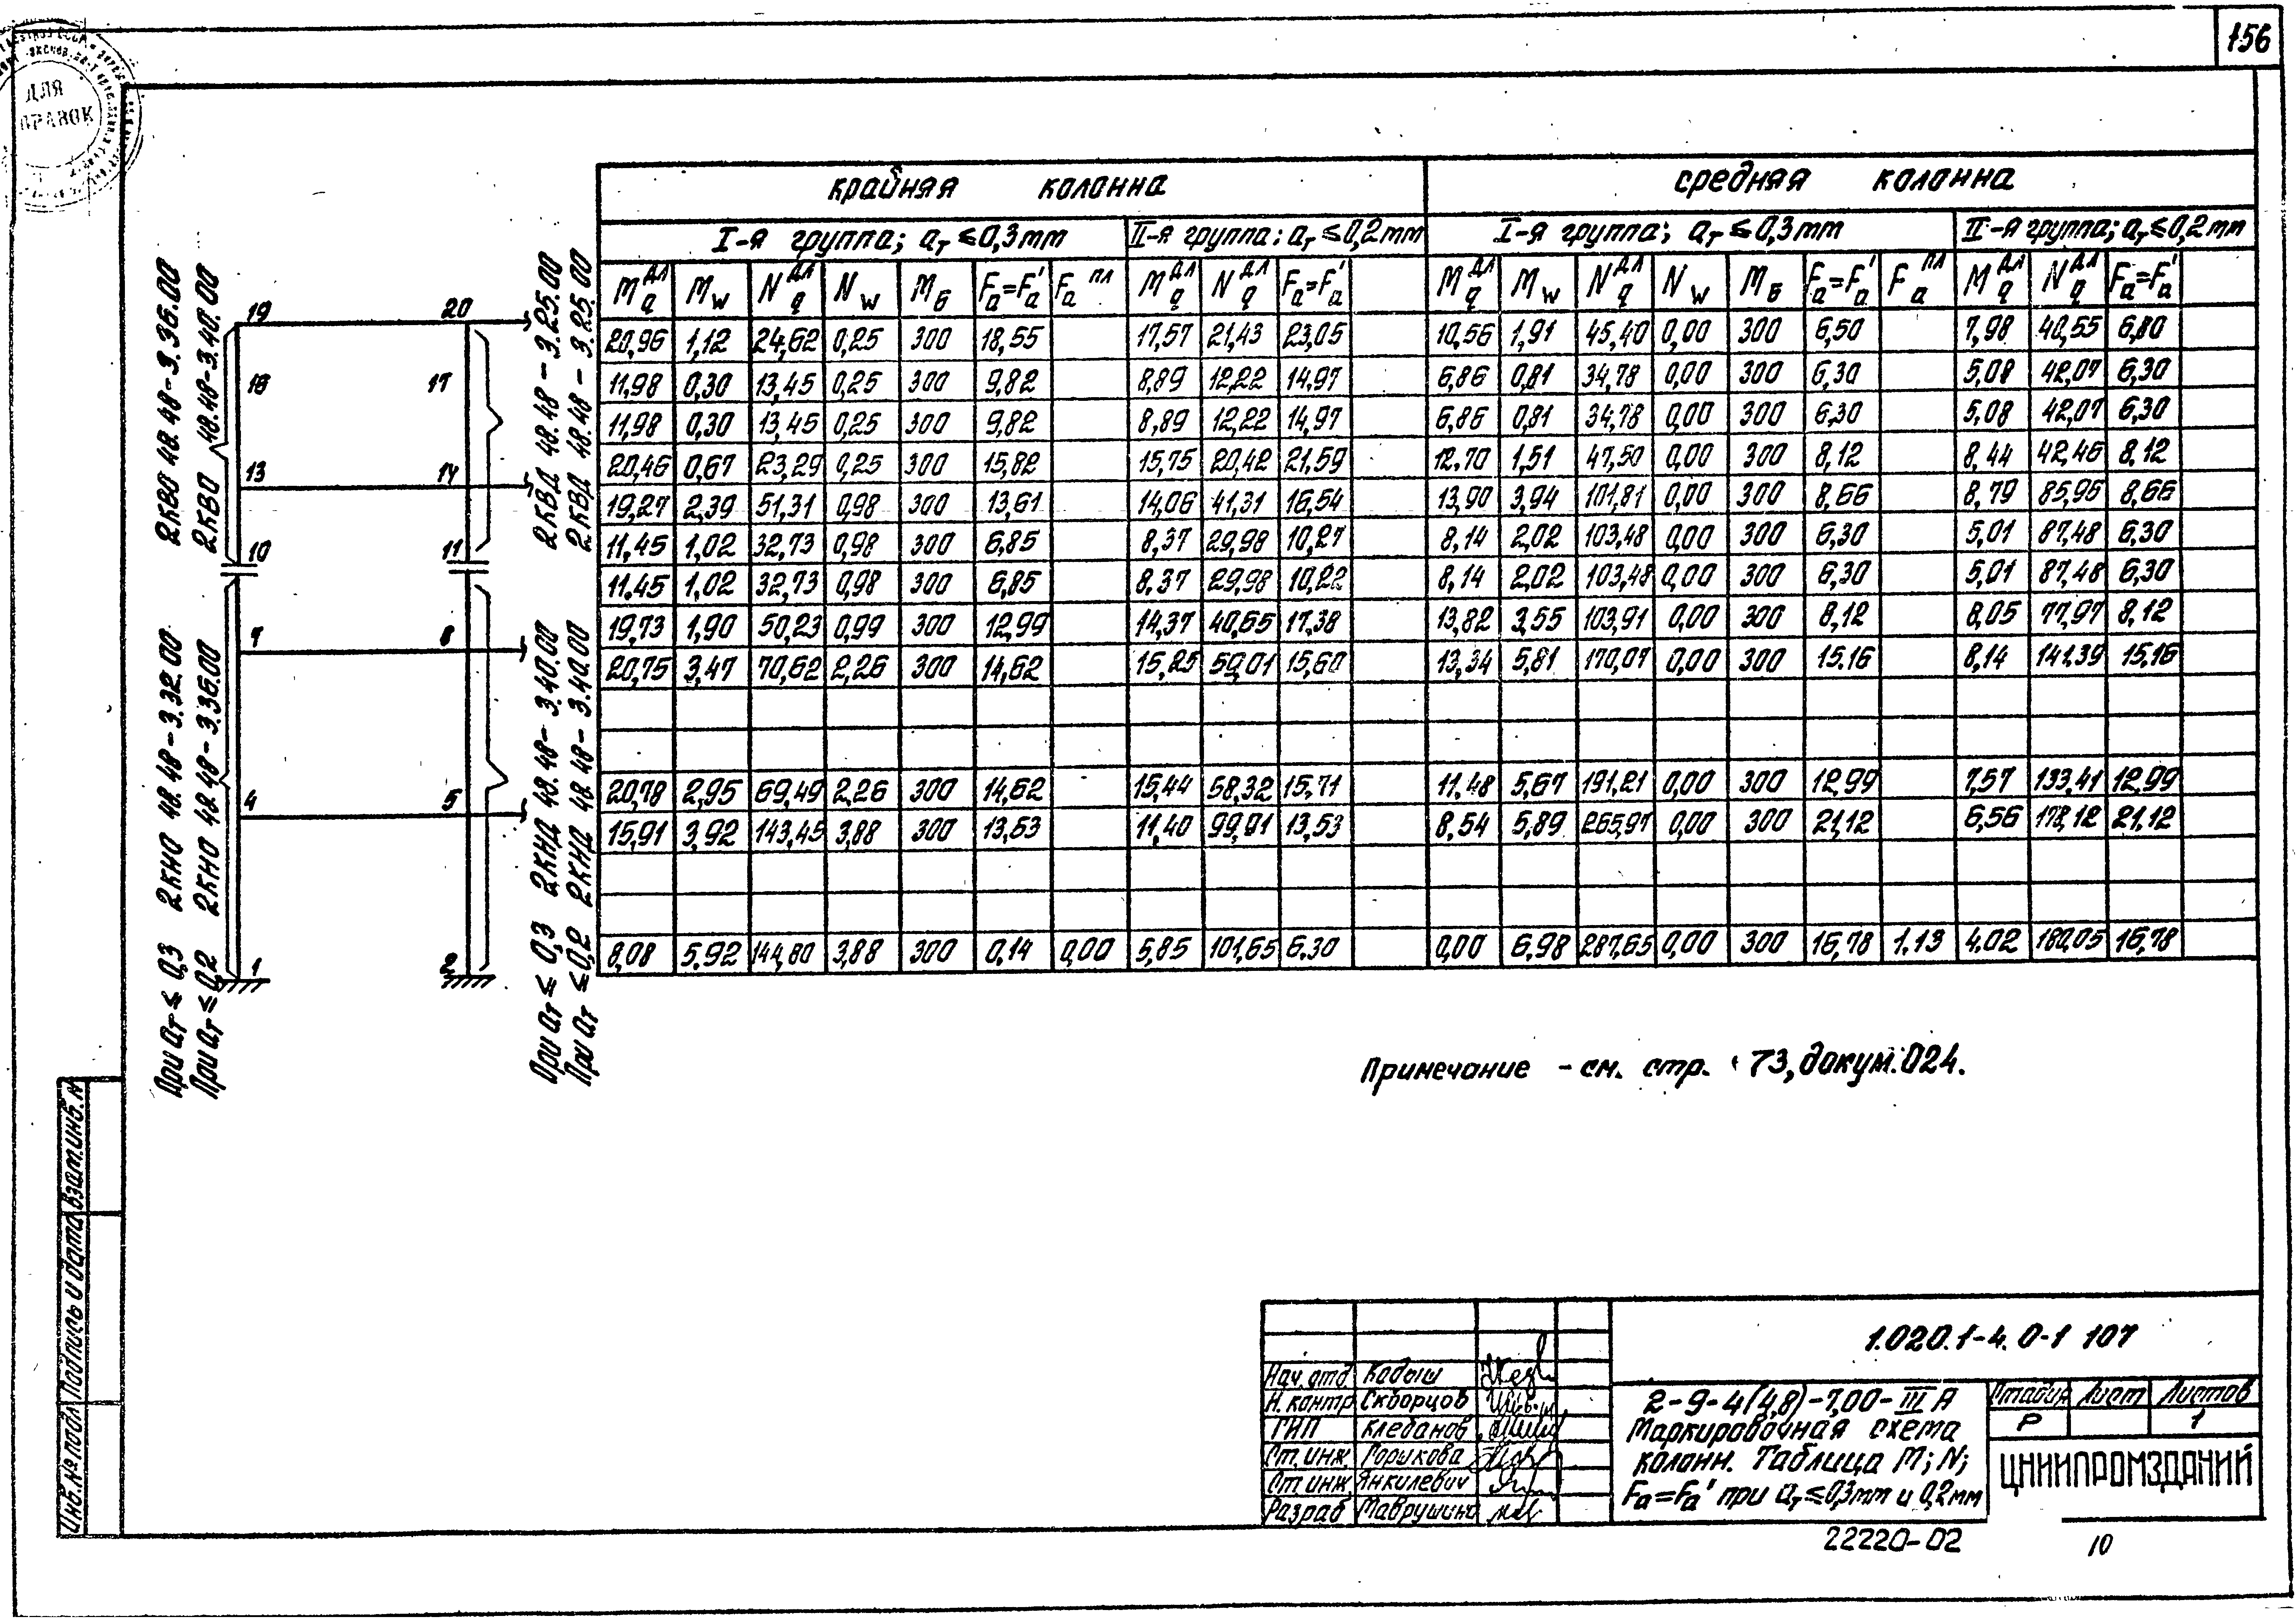 156
ДЛЯ
крайняя колонна
средняя колонна
I-я группа; aт ≤ 0,3 мм
II-я группа; aт ≤ 0,2 мм
I-я группа; aт ≤ 0,3 мм
II-я группа; aт ≤ 0,2 мм
Mq дл Mw Nq дл Nw Mб Fa=Fa' Fa пл Mq дл Nq дл Fa=Fa' Mq дл Mw Nq дл Nw Mб Fa=Fa' Fa пл Mq дл Nq дл Fa=Fa'
20,96 1,12 24,62 0,25 300 18,55 17,57 21,43 23,05 10,56 1,91 45,40 0,00 300 6,50 7,98 40,55 6,80
11,98 0,30 13,45 0,25 300 9,82 8,89 12,22 14,97 6,86 0,81 34,78 0,00 300 6,30 5,08 42,07 6,30
11,98 0,30 13,45 0,25 300 9,82 8,89 12,22 14,97 6,86 0,81 34,78 0,00 300 6,30 5,08 42,07 6,30
20,46 0,67 23,29 0,25 300 15,82 15,75 20,42 21,59 12,70 1,51 47,50 0,00 300 8,12 8,44 42,46 8,12
19,27 2,39 51,31 0,98 300 13,61 14,06 41,31 16,54 13,90 3,94 101,81 0,00 300 8,66 8,79 85,96 8,66
11,45 1,02 32,73 0,98 300 6,85 8,37 29,98 10,27 8,14 2,02 103,48 0,00 300 6,30 5,01 87,48 6,30
11,45 1,02 32,73 0,98 300 6,85 8,37 29,98 10,22 8,14 2,02 103,48 0,00 300 6,30 5,01 87,48 6,30
19,73 1,90 50,23 0,99 300 12,99 14,37 40,65 17,38 13,82 3,55 103,91 0,00 300 8,12 8,05 77,97 8,12
20,75 3,47 70,62 2,26 300 14,62 15,25 59,01 15,60 13,34 5,81 170,07 0,00 300 15,16 8,14 141,39 15,16
20,78 2,95 69,49 2,26 300 14,62 15,44 58,32 15,71 11,48 5,67 191,21 0,00 300 12,99 7,57 133,41 12,99
15,91 3,92 143,45 3,88 300 13,53 11,40 99,91 13,53 8,54 5,89 265,97 0,00 300 21,12 6,56 178,12 21,12
8,08 5,92 144,80 3,88 300 0,14 0,00 5,85 101,65 6,30 0,00 6,98 287,65 0,00 300 16,78 1,13 4,02 180,05 16,78
19 20
16 17
13 14
10 11
7 8
4 5
1 2
При aт ≤ 0,3 2КНО 48.48-3.32.00 2КВО 48.48-3.36.00
При aт ≤ 0,2 2КНО 48.48-3.36.00 2КВО 48.48-3.40.00
При aт ≤ 0,3 2КНД 48.48-3.40.00 2КВД 48.48-3.25.00
При aт ≤ 0,2 2КНД 48.48-3.40.00 2КВД 48.48-3.25.00
Примечание - см. стр. 73, докум. 024.
Инв.№ подл Подпись и дата Взам.инв.№
1.020.1-4.0-1 107
Нач.отд Кодыш
Н.контр Скворцов
ГИП Клебанов
Ст.инж. Горшкова
Ст.инж Янкилевич
Разраб Маврушина
2-9-4(4,8)-7,00-III А
Маркировочная схема
колонн. Таблица M; N;
Fa=Fa' при aт ≤ 0,3 мм и 0,2 мм
Стадия Лист Листов
Р 1
ЦНИИПРОМЗДАНИЙ
22220-02 10